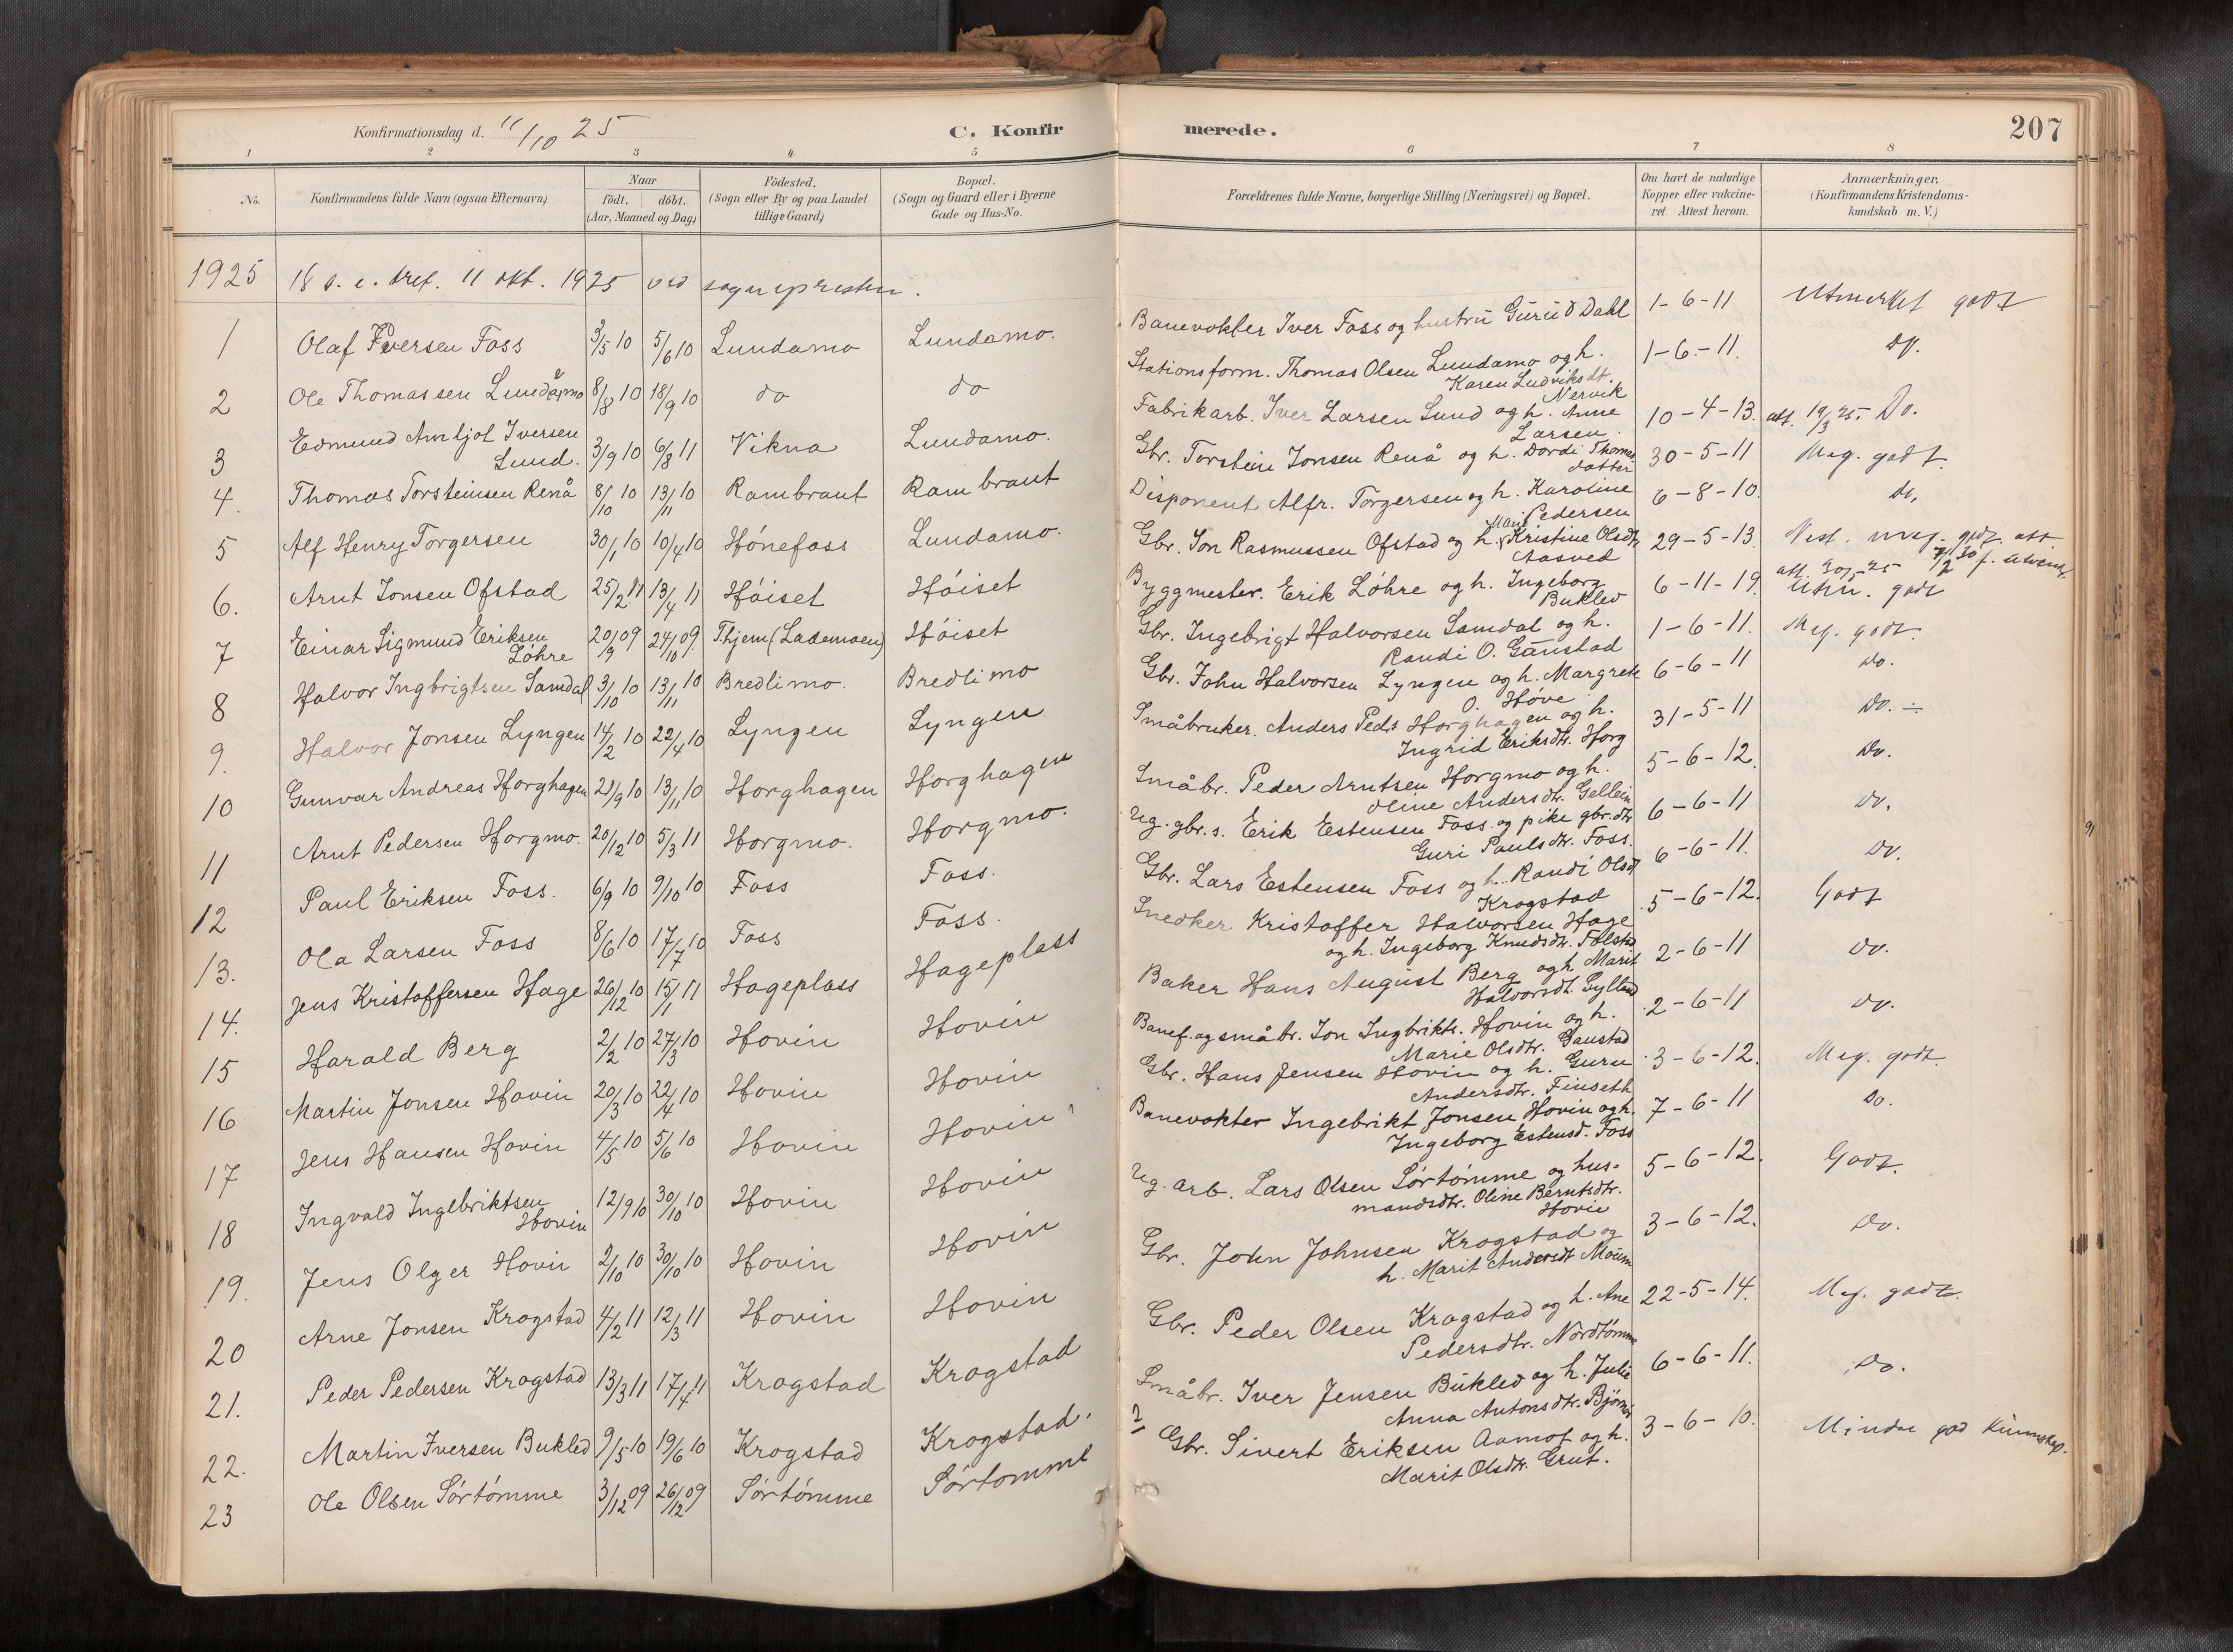 Konfirmationsdag d. 11/10 25
C. Konfir
merede.
207
1 2 3 4 5 6 7 8
No.
Konfirmandens fulde Navn (ogsaa Efternavn)
Naar
födt. döbt.
(Aar, Maaned og Dag)
Födested.
(Sogn eller By og paa Landet
tillige Gaard)
Bopæl.
(Sogn og Gaard eller i Byerne
Gade og Hus-No.
Forældrenes fulde Navne, borgerlige Stilling (Næringsvei) og Bopæl.
Om havt de naturlige
Kopper eller vakcine-
ret Attest herom.
Anmærkninger.
(Konfirmandens Kristendoms-
kundskab m. V.)
1925 18 s. e. tref. 11 okt. 1925 ved sognepresten.
1 Olaf Iversen Foss 3/5 10 5/6 10 Lundamo Lundamo.
Banevokter Iver Foss og hustru Guru O Dahl 1-6-11 Utmerket godt
2 Ole Thomassen Lundamo 8/8 10 18/9 10 do do
Stationsform. Thomas Olsen Lundamo og h. 1-6-11. Do.
Karen Ludviksdt.
Nervik
3 Edmund Arnljot Iversen
Lund. 3/9 10 6/8 11 Vikna Lundamo.
Fabrikarb. Iver Larsen Lund og h. Anne 10-4-13. att. 19/3 25. Do.
Larsen.
4. Thomas Torsteinsen Renå 8/10 10 13/11 10 Rambraut Rambraut
Gbr. Torstein Jonsen Renå og h. Dordi Thomas 30-5-11 Meg. godt.
datter
5 Alf Henry Torgersen 30/1 10 10/4 10 Hónefoss Lundamo.
Disponent Alfr. Torgersen og h. Karoline 6-8-10. do.
Pedersen
6. Arnt Jonsen Ofstad 25/2 11 13/4 11 Hóiset Hóiset
Gbr. Jon Rasmussen Ofstad og h. Mari Kristine Olsdtr 29-5-13. Nest. meg. godt att
Aasved
7 Einar Sigmund Eriksen
Lóhre 20/9 09 24/10 09. Thjem (Lademoen) Hóiset
Byggmester. Erik Lóhre og h. Ingeborg 6-11-19. Utm. godt
Bukled
8 Halvor Ingbrigtsen Samdal 3/10 10 13/11 10 Bredlimo. Bredlimo
Gbr. Ingebrigt Halvorsen Samdal og h. 1-6-11. Meg. godt.
Randi O. Gaustad
9. Halvor Jonsen Lyngen 14/2 10 22/4 10 Lyngen Lyngen
Gbr. John Halvorsen Lyngen og h. Margrete 6-6-11 do.
O. Hóve
10 Gunvar Andreas Horghagen 21/9 10 13/11 10 Horghagen Horghagen
Småbruker. Anders Peds Horghagen og h. 31-5-11 Do.
Ingrid Eriksdtr. Horg
11 Arnt Pedersen Horgmo. 20/12 10 5/3 11 Horgmo. Horgmo.
Småbr. Peder Arntsen Horgmo og h. 5-6-12. Do.
Oline Andersdtr. Gellein
12 Paul Eriksen Foss. 6/9 10 9/10 10 Foss Foss.
Ug. gbr. s. Erik Estensen Foss og pike gbr. dtr 6-6-11 Do.
Guri Paulsdtr. Foss.
13. Ola Larsen Foss 8/6 10 17/7 10 Foss Foss.
Gbr. Lars Estensen Foss og h. Randi Olsdt 6-6-11. Do.
Krogstad
14. Jens Kristoffersen Hage 26/12 10 15/1 11 Hageplass Hageplass
Snedker Kristoffer Halvorsen Hage 5-6-12. Godt
og h. Ingeborg Knudsdtr. Folstad
15 Harald Berg 2/2 10 27/3 10 Hovin Hovin
Baker Hans August Berg og h. Marit 2-6-11 Do.
Halvorsdt. Gylland
16 Martin Jonsen Hovin 20/3 10 22/4 10 Hovin Hovin
Banef. og småbr. Jon Ingbrikts. Hovin og h. 2-6-11 Do.
Marie Olsdtr. Gaustad
17 Jens Hansen Hovin 4/5 10 5/6 10 Hovin Hovin
Gbr. Hans Jensen Hovin og h. Guru 3-6-12. Meg. godt
Andersdtr. Finseth
18 Ingvald Ingebriktsen
Hovin 12/9 10 30/10 10 Hovin Hovin
Banevokter Ingebrikt Jonsen Hovin og h. 7-6-11 Do.
Ingeborg Estensd. Foss
19. Jens Olger Hovin 2/10 10 30/10 10 Hovin Hovin
Ug. arb. Lars Olsen Sørtømme og hus- 5-6-12. Godt.
mandsdtr. Oline Berntsdtr.
Hovin
20 Arne Jonsen Krogstad 4/2 11 12/3 11 Hovin Hovin
Gbr. John Johnsen Krogstad og 3-6-12. Do.
h. Marit Andersdt Moum
21. Peder Pedersen Krogstad 13/3 11 17/4 11 Krogstad Krogstad
Gbr. Peder Olsen Krogstad og h. Ane 22-5-14. Meg. godt.
Pedersdtr. Nordtømme
22. Martin Iversen Bukled 9/5 10 19/6 10 Krogstad Krogstad.
Småbr. Iver Jensen Bukled og h. Julie 6-6-11. Do.
Anna Antonsdtr.
23 Ole Olsen Sørtómme 3/12 09 26/12 09 Sørtómme Sørtomme
Gbr. Sivert Eriksen Aamot og h. 3-6-10. Mindre god kunnskap.
Marit Olsdtr. Grut.